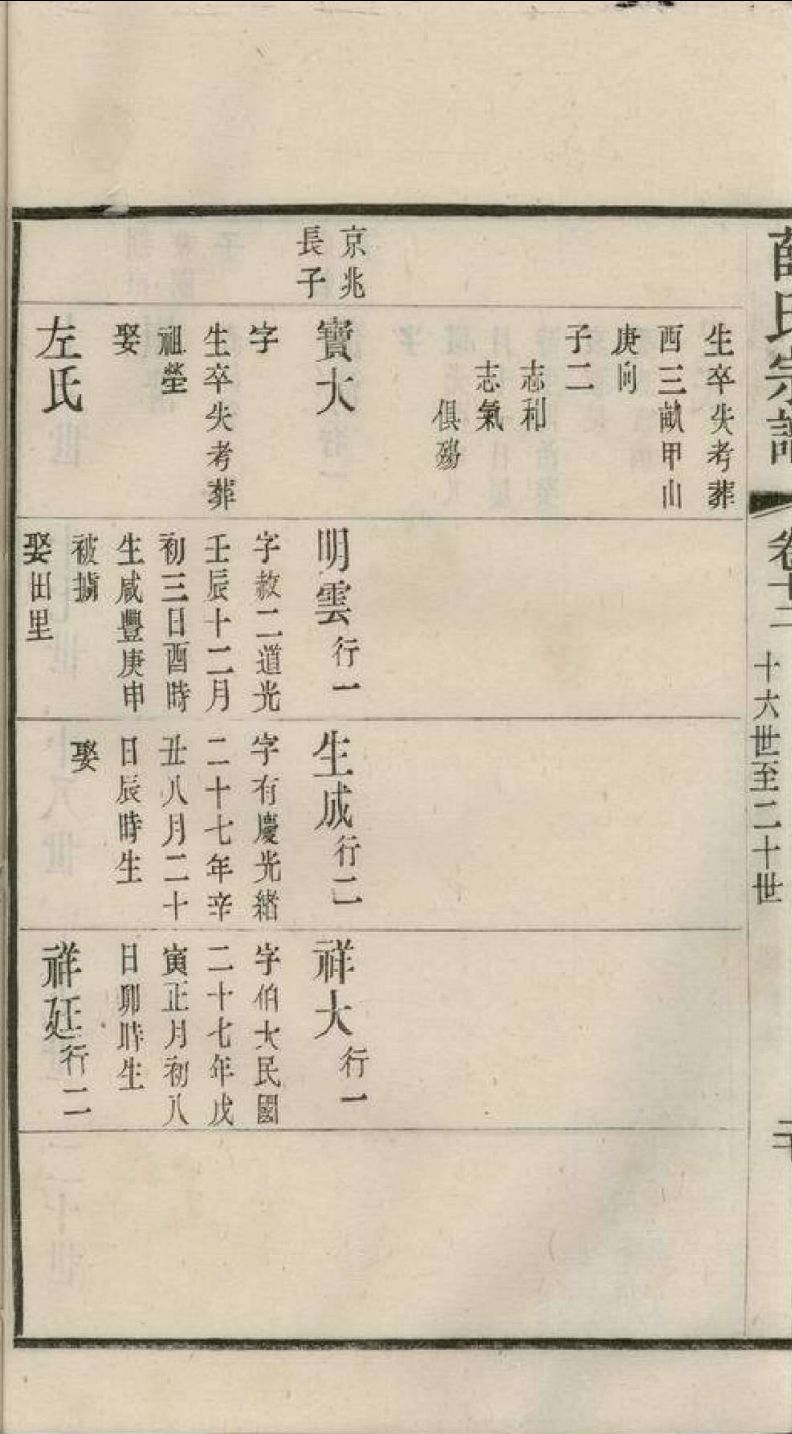 薛氏宗譜
卷十二
十六世至二十世
生卒失考葬
西三畝甲山
庚向
子二
志利
志氣
俱殤
京兆
長子
寶大
字
生卒失考葬
祖塋
娶
左氏
明雲行一
字赦二道光
壬辰十二月
初三日酉時
生咸豐庚申
被擄
娶田里
生成行二
字有慶光緒
二十七年辛
丑八月二十
日辰時生
娶
祥大行一
字伯大民國
二十七年戊
寅正月初八
日卯時生
祥廷行二